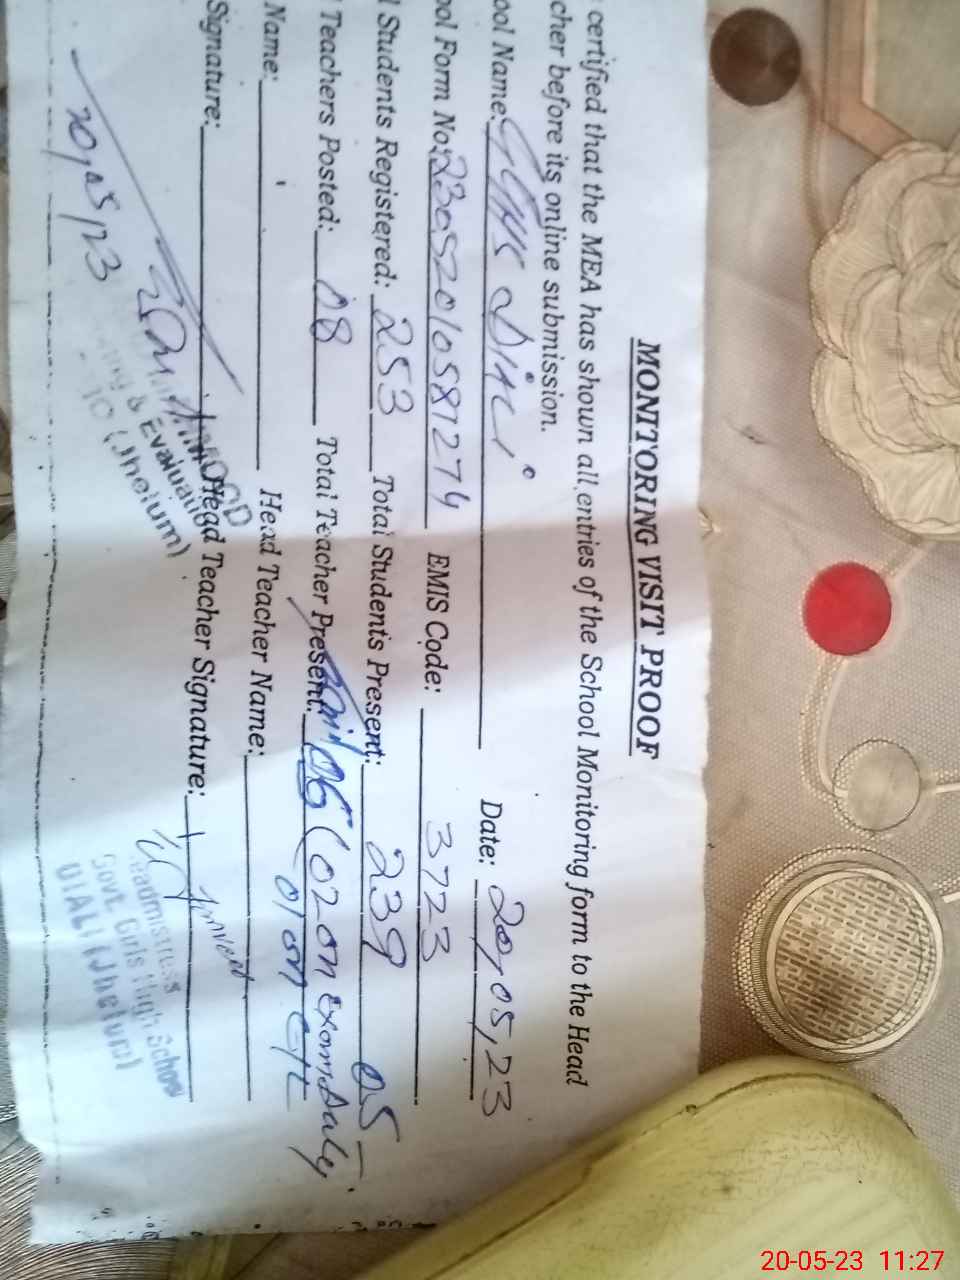 MONITORING VISIT PROOF
certified that the MEA has shown all entries of the School Monitoring form to the Head
cher before its online submission.
ool Name: GGHS Date: 20,05,23
ool Form No: 23052010581274 EMIS Code: 3723
l Students Registered: 253 Total Students Present: 239
Teachers Posted: 08 Total Teacher Present: 05
06 (02 on exam Duty
01 on C/L
Name: Head Teacher Name:
Signature: Head Teacher Signature:
20,05,23
& Evaluation
(Jhelum)
Headmistress
Govt. Girls High School
(Jhelum)
20-05-23 11:27